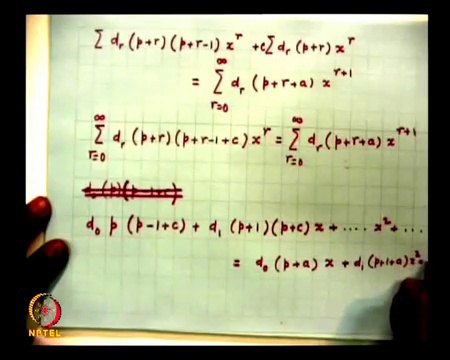 Σ d_r (p+r)(p+r-1) x^r + c Σ d_r (p+r) x^r
= Σ_{r=0}^{∞} d_r (p+r+a) x^{r+1}
Σ_{r=0}^{∞} d_r (p+r)(p+r-1+c) x^r = Σ_{r=0}^{∞} d_r (p+r+a) x^{r+1}
d_0 p (p-1+c) + d_1 (p+1)(p+c) x + .... x^2 + ...
= d_0 (p+a) x + d_1 (p+1+a) x^2
NPTEL